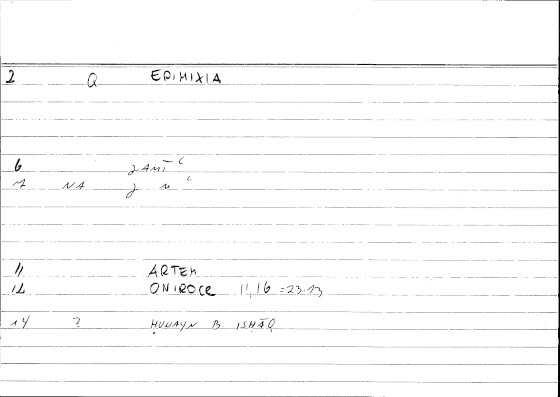 2 Q EPIMIXIA
6 ǧAMĪʿ
7 NA ǧ m ʿ
11 ARTEM
12 ONIROCR 11,16 = 23.13
14 ? ḤUNAYN B ISHĀQ